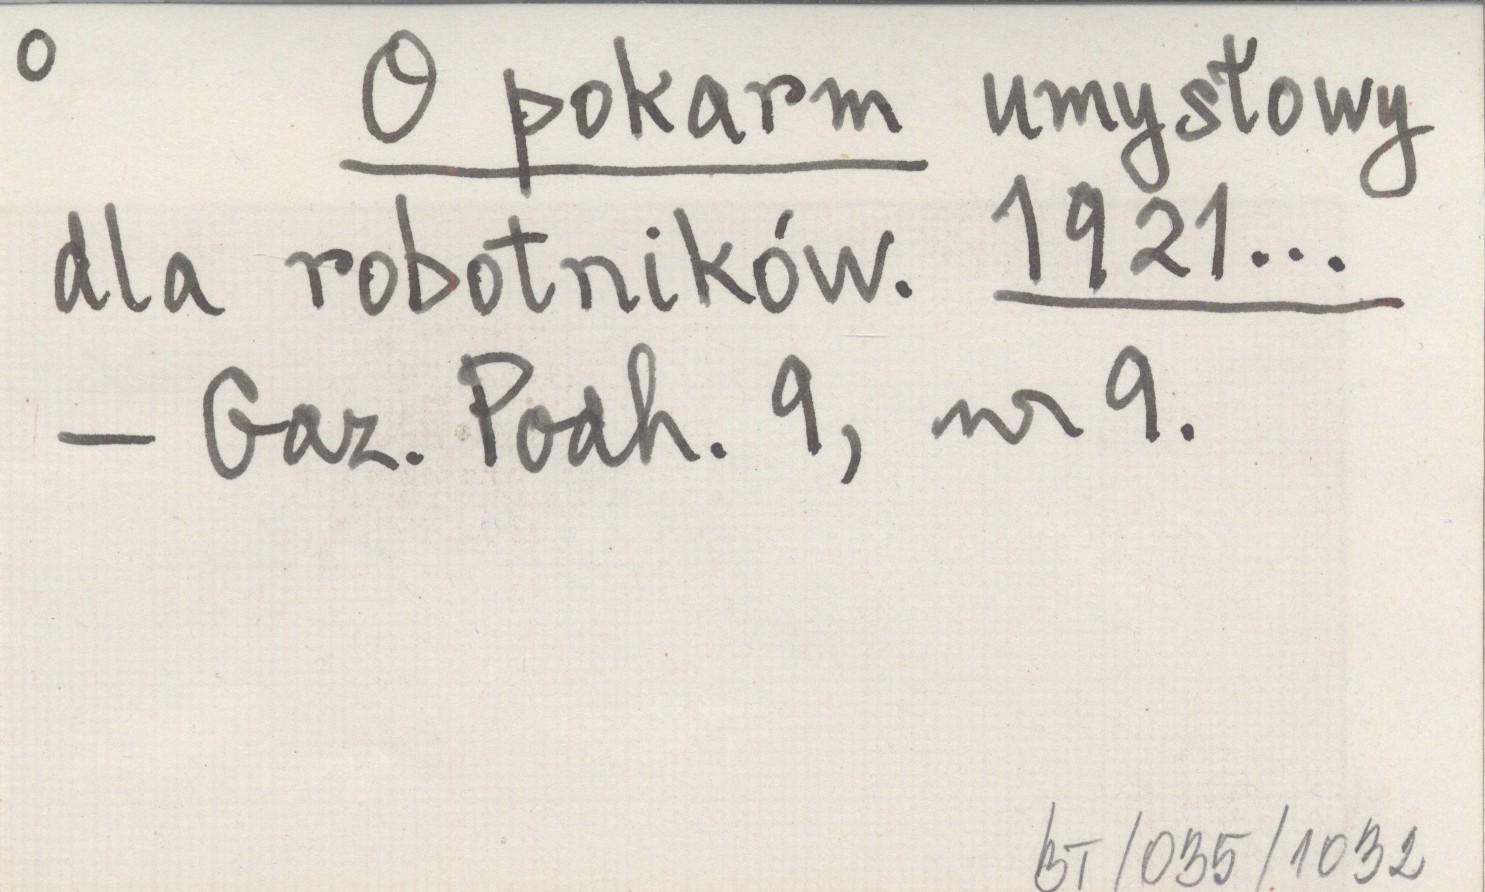 o O pokarm umysłowy
dla robotników. 1921...
— Gaz. Podh. 9, nr 9.
BT/035/1032